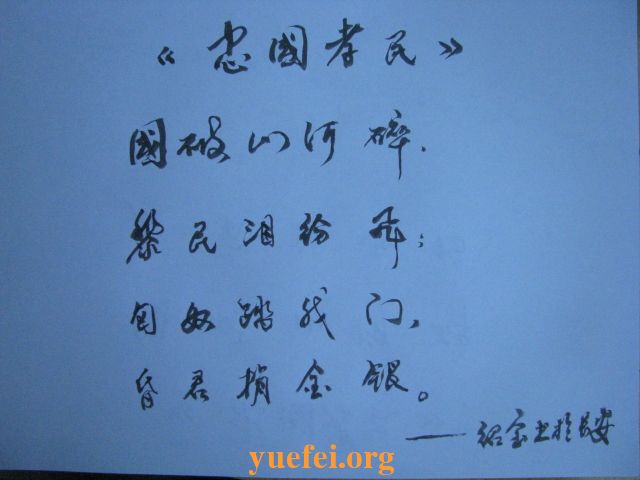 《忠國孝民》
國破山河碎.
黎民泪纷飞;
匈奴踏我门,
昏君捐金银。
——绍金书於长安
yuefei.org